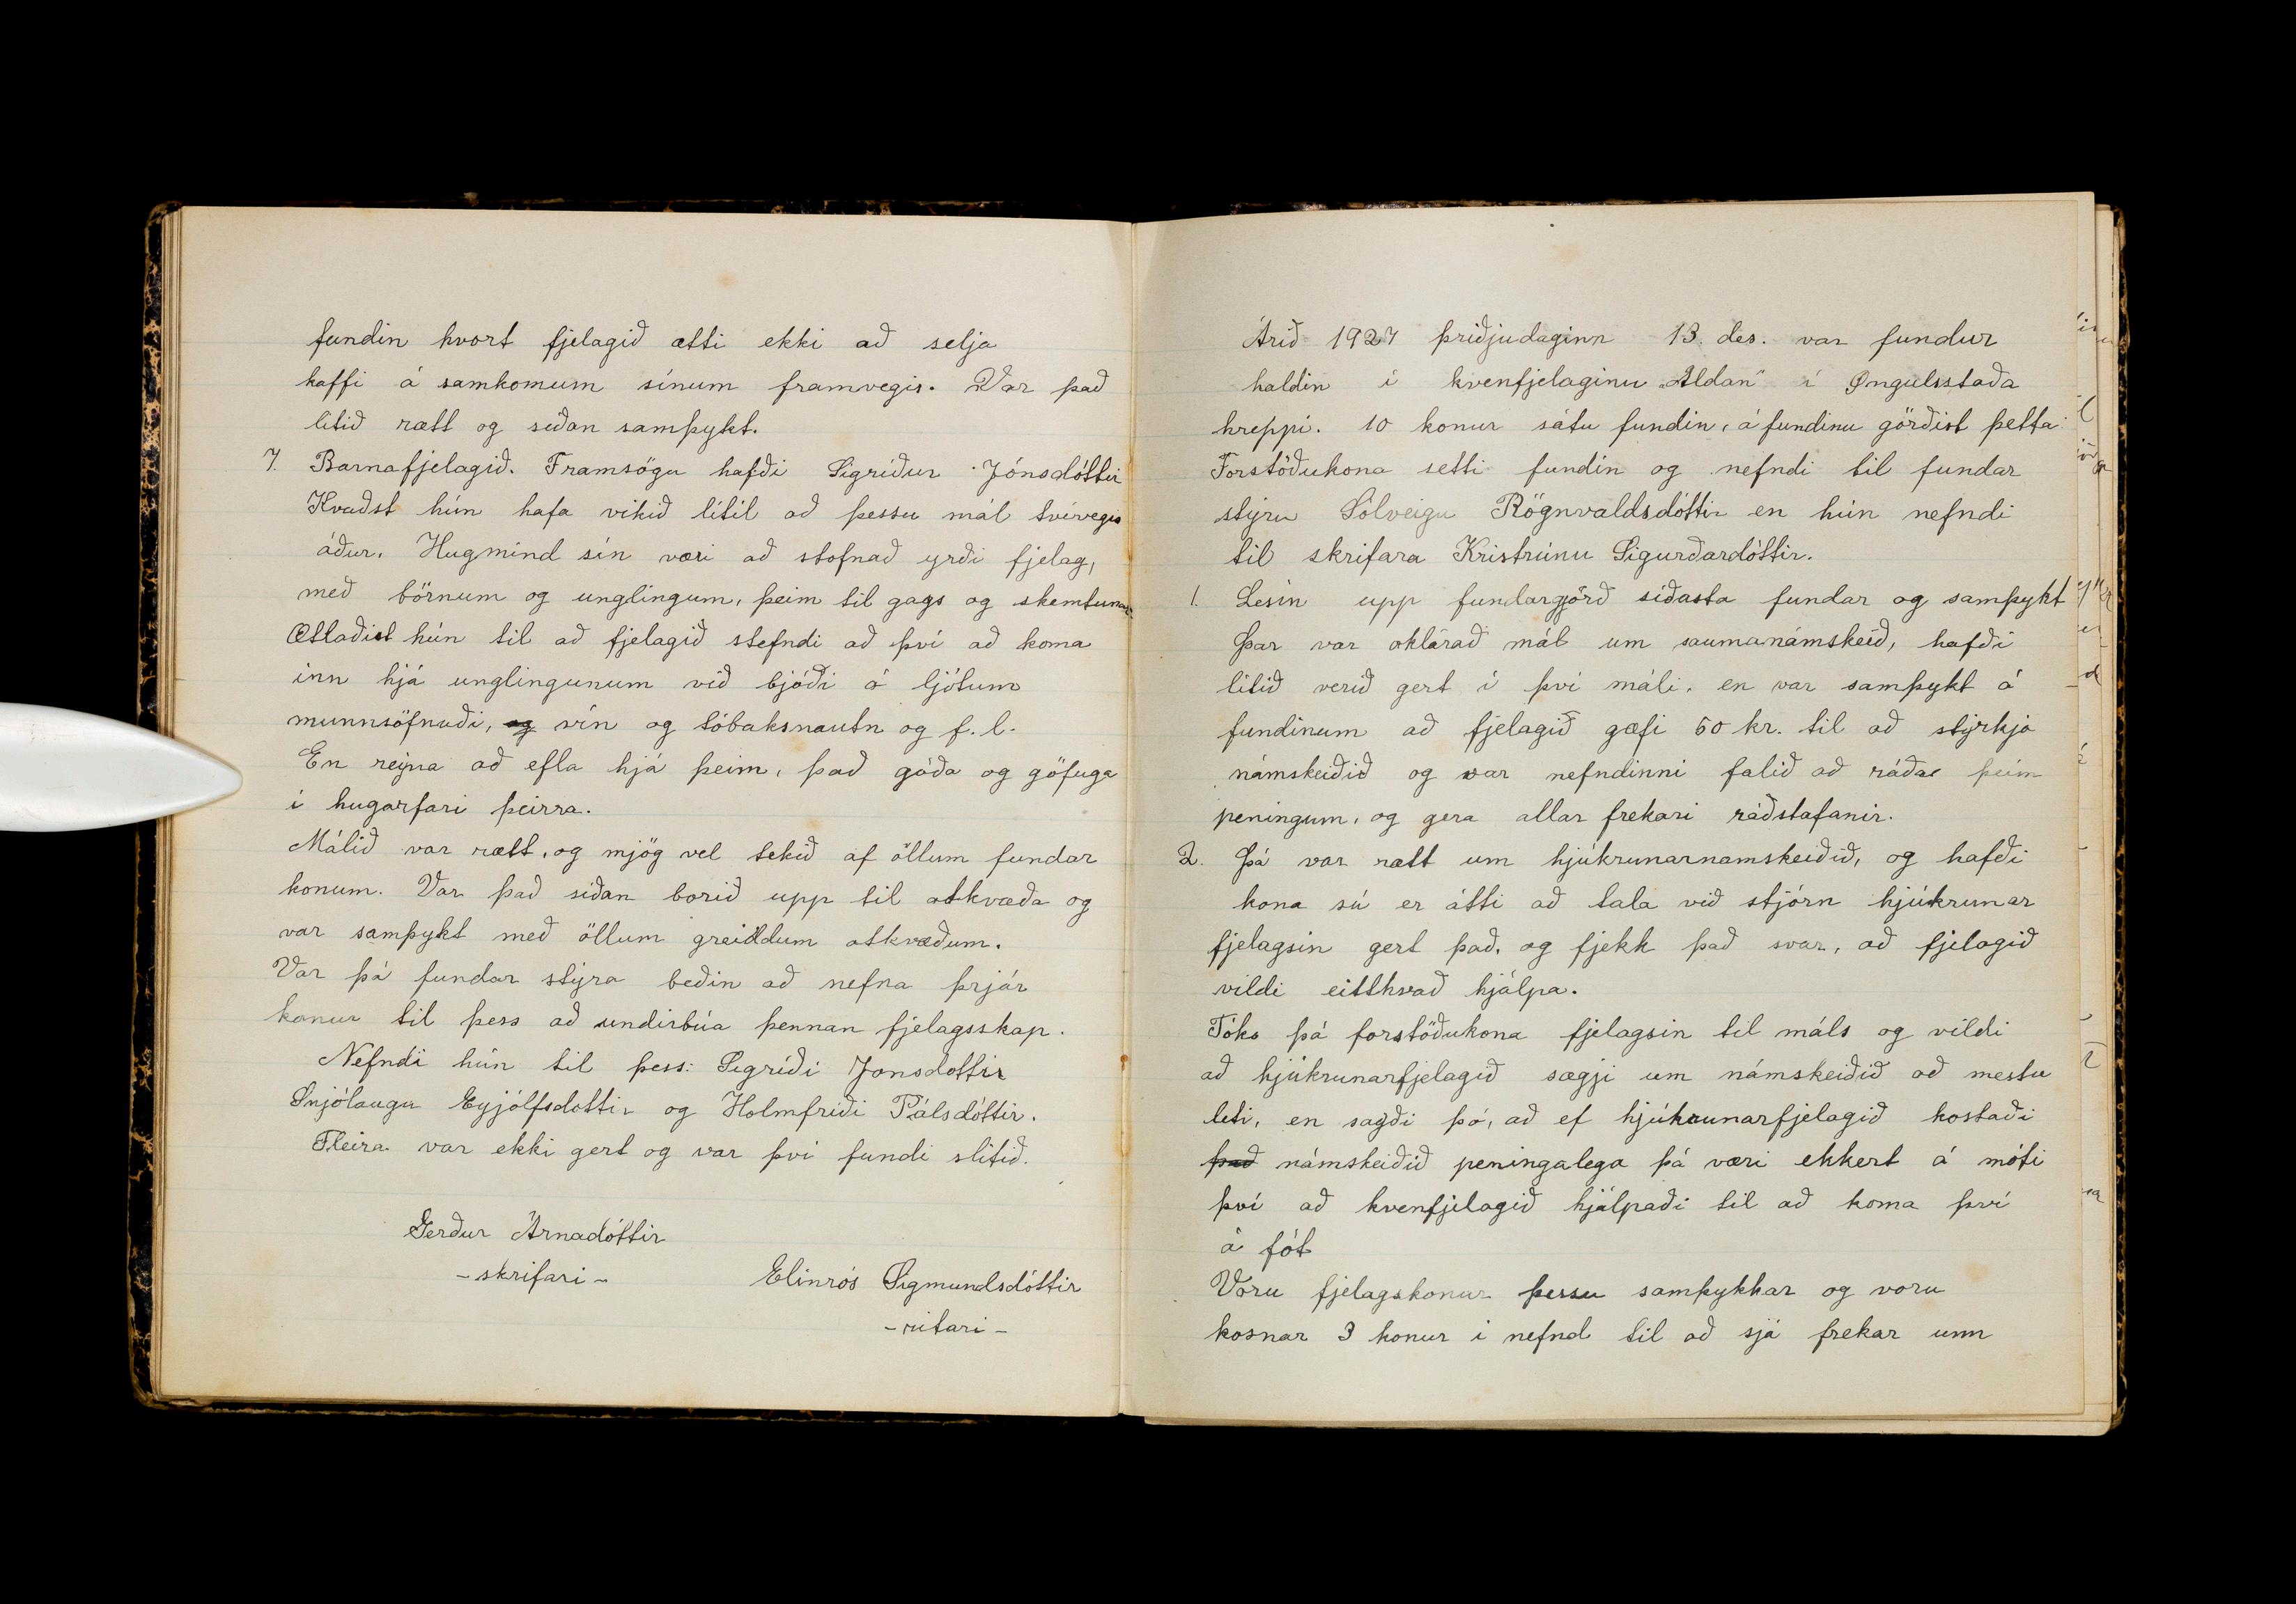 fundin hvort fjelagið ætti ekki að selja
kaffi á samkomum sínum framvegis. Var það
litið rætt og siðan samþykt.
7. Barnafjelagið. Framsögu hafði Sigríður Jónsdóttir
Kvaðst hún hafa vikið lítil að þessu mál tvívegis
áður. Hugmind sín væri að stofnað yrði fjelag,
með börnum og unglingum, þeim til gags og skemtunar
Ætlaðist hún til að fjelagið stefndi að því að koma
inn hjá unglingunum við bjóði á ljótum
munnsöfnuði, og vín og tóbaksnautn og f. l.
En reyna að efla hjá þeim, það góða og göfuga
í hugarfari þeirra.
Málið var rætt, og mjög vel tekið af öllum fundar
konum. Var það siðan borið upp til atkvæða og
var samþykt með öllum greiddum atkvæðum.
Var þá fundar stýra beðin að nefna þrjár
konur til þess að undirbúa þennan fjelagsskap.
Nefndi hún til þess: Sigríði Jonsdottir
Snjólaugu Eyjólfsdottir og Holmfriði Pálsdóttir.
Fleira var ekki gert og var því fundi slitið.
Gerður Árnadóttir
- skrifari -
Elinrós Sigmundsdóttir
- ritari -
Árið 1927 þriðjudaginn 13. des. var fundur
haldin í kvenfjelaginu "Aldan" í Öngulsstaða
hreppi. 10 konur sátu fundin, á fundinu görðist þetta:
Forstöðukona setti fundin og nefndi til fundar
stýru Sólveigu Rögnvaldsdóttir en hún nefndi
til skrifara Kristrúnu Sigurðardóttir.
1. Lesin upp fundargjörð síðasta fundar og samþykt
Þar var óklárað mál um saumanámskeið, hafði
litið verið gert í því máli, en var samþykt á
fundinum að fjelagið gæfi 50 kr. til að styrkja
námskeiðið og var nefndinni falið að ráða þeim
peningum, og gera allar frekari ráðstafanir.
2. Þá var rætt um hjúkrunarnamskeiðið, og hafði
kona sú er átti að tala við stjórn hjúkrunar
fjelagsin gert það, og fjekk það svar, að fjelagið
vildi eitthvað hjálpa.
Tók þá forstöðukona fjelagsin til máls og vildi
að hjúkrunarfjelagið sægji um námskeiðið að mestu
leti, en sagði þó, að ef hjúkrunarfjelagið kostaði
það námskeiðið peningalega þá væri ekkert á móti
því að kvenfjelagið hjálpaði til að koma því
á fót
Voru fjelagskonur þessu samþykkar og voru
kosnar 3 konur í nefnd til að sjá frekar um